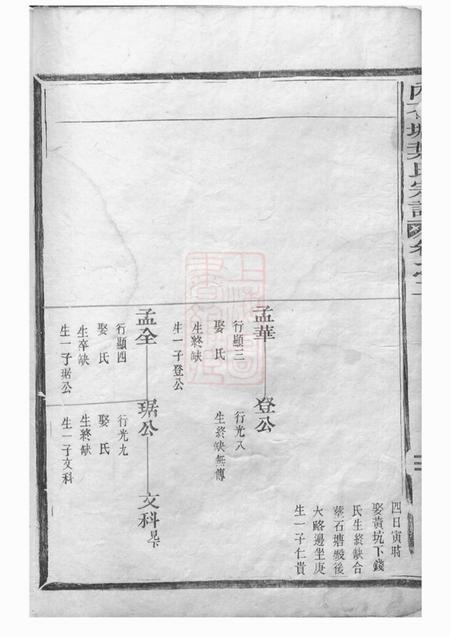 四日寅時
娶黃坑下錢
氏生終缺合
葬石塘殿後
大路邊坐庚
生一子仁貴
孟華
登公
行顯三
娶氏
生終缺
生一子登公
行光八
生終缺無傳
孟全
琚公
文科
行顯四
娶氏
生卒缺
生一子琚公
行光九
娶氏
生終缺
生一子文科